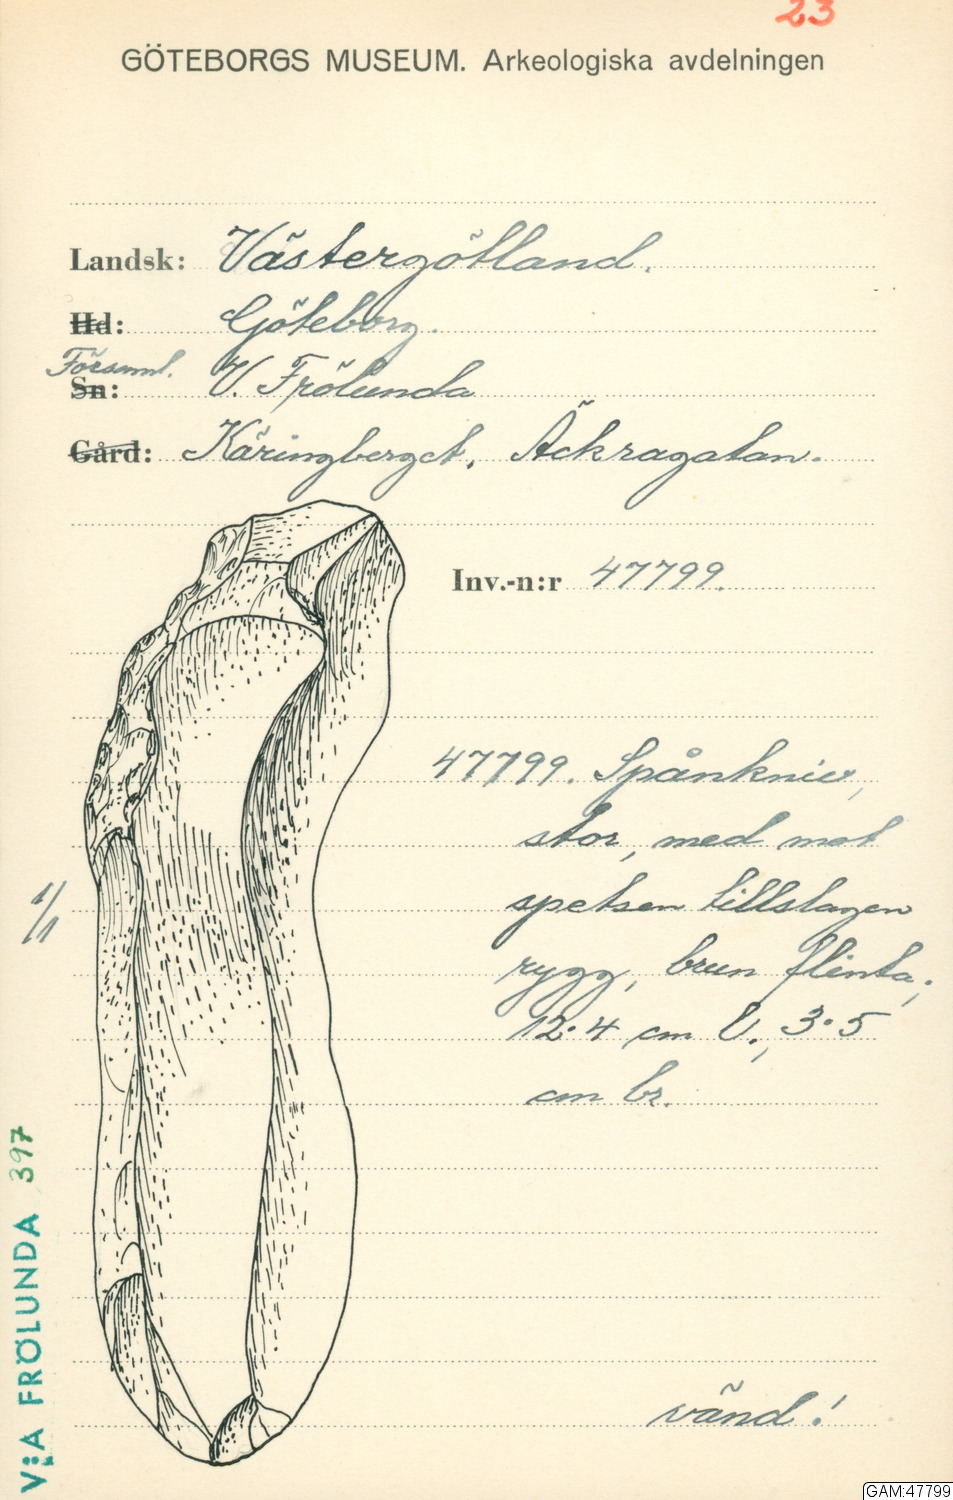 23
GÖTEBORGS MUSEUM. Arkeologiska avdelningen
Landsk: Västergötland.
Hd: Göteborg.
Församl.
Sn: V. Frölunda
Gård: Käringberget, Äckragatan.
Inv.-n:r 47799.
47799. Spånkniv,
stor, med mot
spetsen tillslagen
rygg, brun flinta;
12·4 cm l., 3·5
cm br.
1/1
V:A FRÖLUNDA 397
vänd!
GAM:47799